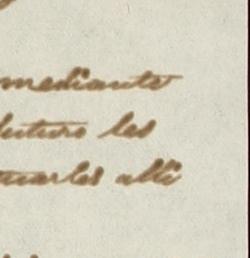 mediante
futuro les
uarles alli